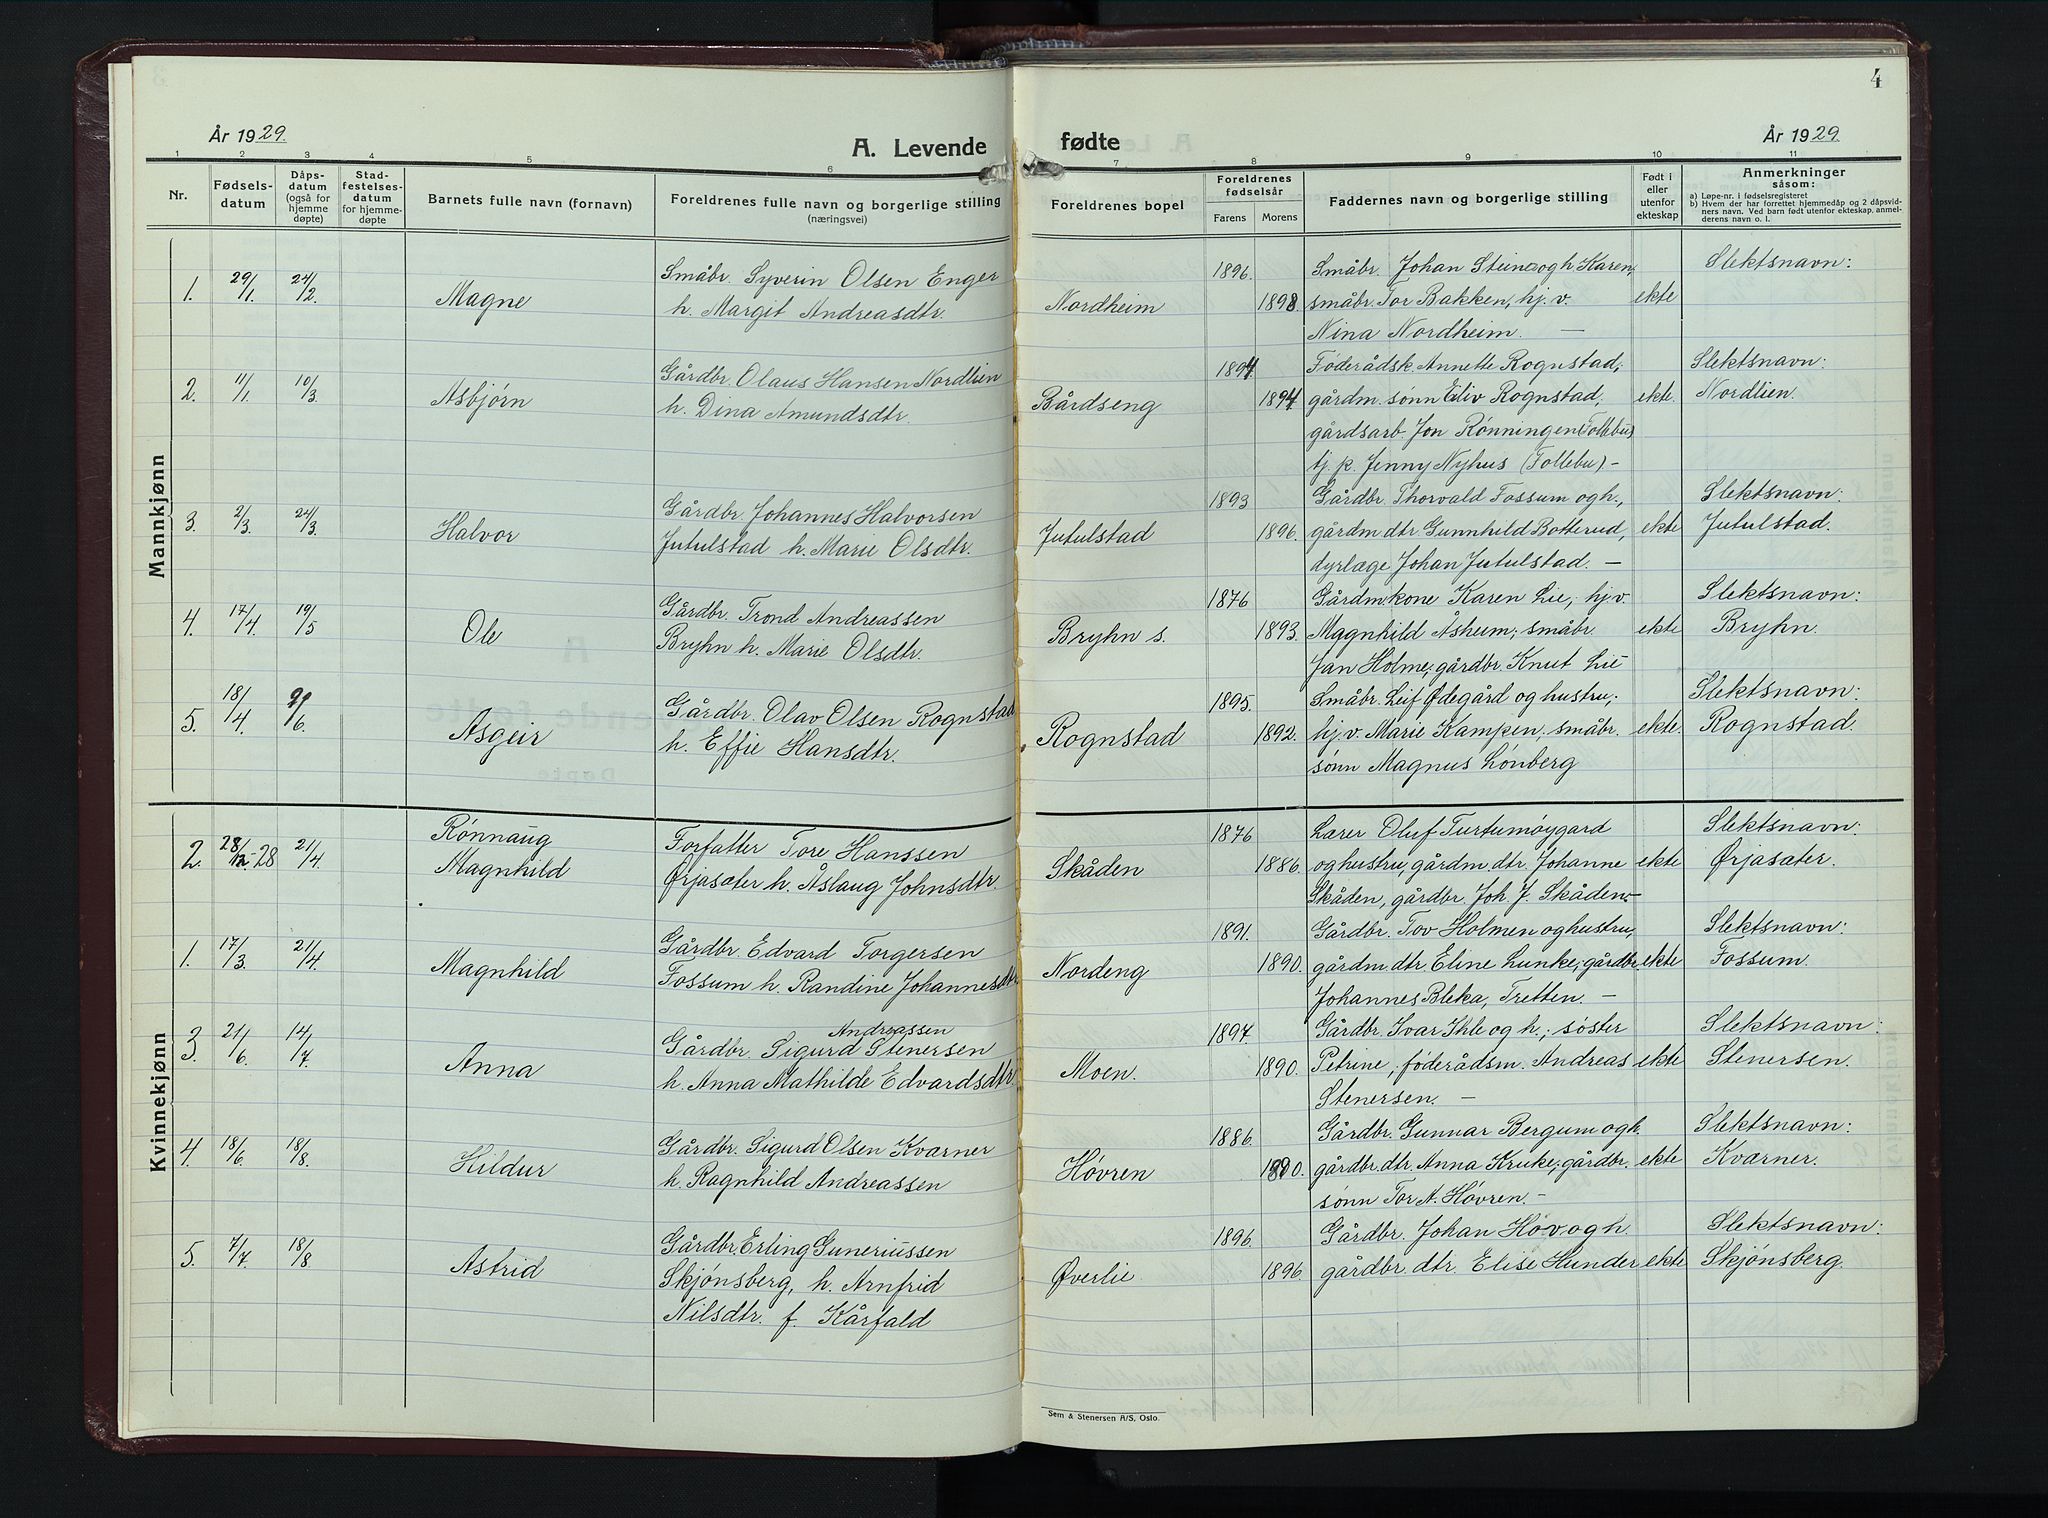 4
År 1929.
A. Levende fødte
År 1929.
1 2 3 4 5 6 7 8 9 10 11
Nr.
Fødsels-
datum
Dåps-
datum
(også for
hjemme
døpte)
Stad-
festelses-
datum
for hjemme-
døpte
Barnets fulle navn (fornavn)
Foreldrenes fulle navn og borgerlige stilling
(næringsvei)
Foreldrenes bopel
Foreldrenes
fødselsår
Farens Morens
Faddernes navn og borgerlige stilling
Født i
eller
utenfor
ekteskap
Anmerkninger
såsom:
a) Løpe-nr. i fødselsregisteret
b) Hvem der har forrettet hjemmedåp og 2 dåpsvid-
ners navn. Ved barn født utenfor ekteskap, anmel-
derens navn o. l.
Mannkjønn
1. 29/1. 24/2 Magne
Småbr. Syverin Olsen Enger
h. Margit Andreasdtr.
Nordheim
1896. 1898
Småbr. Johan Steine og h Karen,
småbr. Tor Bakken, hj. v.
Nina Nordheim. —
ekte
Slektsnavn:
2. 11/1. 10/3 Asbjørn
Gårdbr. Olaus Hansen Nordlien
h. Dina Amundsdtr.
Bårdseng
1894. 1894
Føderådsk. Annette Rognstad,
gårdm. sønn Eliv Rognstad,
gårdsarb. Jon Rønningen (Follebu)
tj. p. Jenny Nyhus (Follebu) -
ekte.
Slektsnavn:
Nordlien.
3. 2/3. 24/3 Halvor
Gårdbr. Johannes Halvorsen
Jutulstad h. Marie Olsdtr.
Jutulstad
1893 1896.
Gårdbr. Thorvald Fossum og h.,
gårdm dtr. Gunnhild Botterud,
dyrlæge Johan Jutulstad. —
ekte
Slektsnavn:
Jutulstad.
4. 17/4. 19/5 Ole
Gårdbr. Trond Andreassen
Bryhn h. Marie Olsdtr.
Bryhn s.
1876 1893.
Gårdm.kone Karen Lie, hj.v.
Magnhild Åsheim; småbr.
Jan Holme, gårdbr. Knut Lie
ekte
Slektsnavn:
Bryhn.
5. 18/4. 9/6. Asgeir
Gårdbr. Olav Olsen Rognstad
h. Effie Hansdtr.
Rognstad
1895. 1892.
Småbr. Leif Ødegård og hustru;
hj.v. Marie Kampen. småbr.
sønn Magnus Lønberg
ekte.
Slektsnavn:
Rognstad.
Kvinnekjønn
2. 28/12-28 21/4 Rønnaug
Magnhild
Forfatter Tore Hanssen
Ørjasæter h. Åslaug Johnsdtr.
Skåden
1876 1886.
Lærer Oluf Turtumøygard
og hustru, gårdm. dtr. Johanne
Skåden, gårdbr. Joh. J. Skåden. -
ekte
Slektsnavn:
Ørjasæter.
1. 17/3. 21/4. Magnhild
Gårdbr. Edvard Torgersen
Fossum h. Randine Johannesdtr.
Nordeng
1891. 1890.
Gårdbr. Tov Holmen og hustru,
gårdm dtr. Eline Lunke; gårdbr
Johannes Bleka, Tretten. —
ekte
Slektsnavn:
Fossum.
3. 21/6. 14/7. Anna
Andreassen
Gårdbr. Sigurd Stenersen
h. Anna Mathilde Edvardsdtr
Moen.
1897. 1890.
Gårdbr. Ivar Ihle og h.; søster
Petrine, føderådsm. Andreas
Stenersen. —
ekte
Slektsnavn:
Stenersen.
4. 18/6. 18/8. Hildur
Gårdbr. Sigurd Olsen Kværner
h. Ragnhild Andreassen
Høvren
1886. 1890.
Gårdbr. Gunnar Bergum og h.
gårdbr. dtr. Anna Kruke, gårdbr.
sønn Tor A. Høvren. -
ekte
Slektsnavn:
Kværner.
5. 7/7. 18/8 Astrid
Gårdbr. Erling Gunerüssen
Skjønsberg, h. Arnfrid
Nilsdtr. f. Kårfald
Øverlie
1896. 1896
Gårdbr. Johan Hov og h.
gårdbr. dtr. Elise Hunder
ekte
Slektsnavn:
Skjønsberg.
Sem & Stenersen A/S, Oslo.